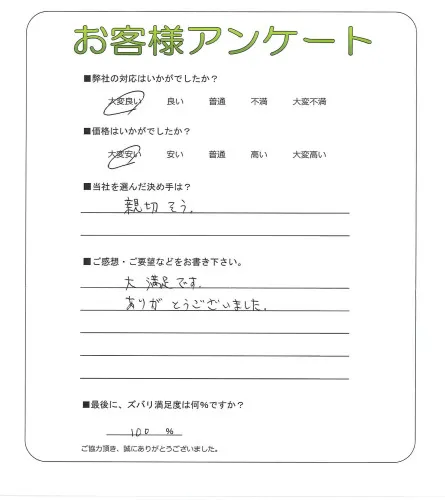 お客様アンケート
■弊社の対応はいかがでしたか？
大変良い 良い 普通 不満 大変不満
■価格はいかがでしたか？
大変安い 安い 普通 高い 大変高い
■当社を選んだ決め手は？
親切そう.
■ご感想・ご要望などをお書き下さい。
大満足です.
ありがとうございました.
■最後に、ズバリ満足度は何％ですか？
100 %
ご協力頂き、誠にありがとうございました。